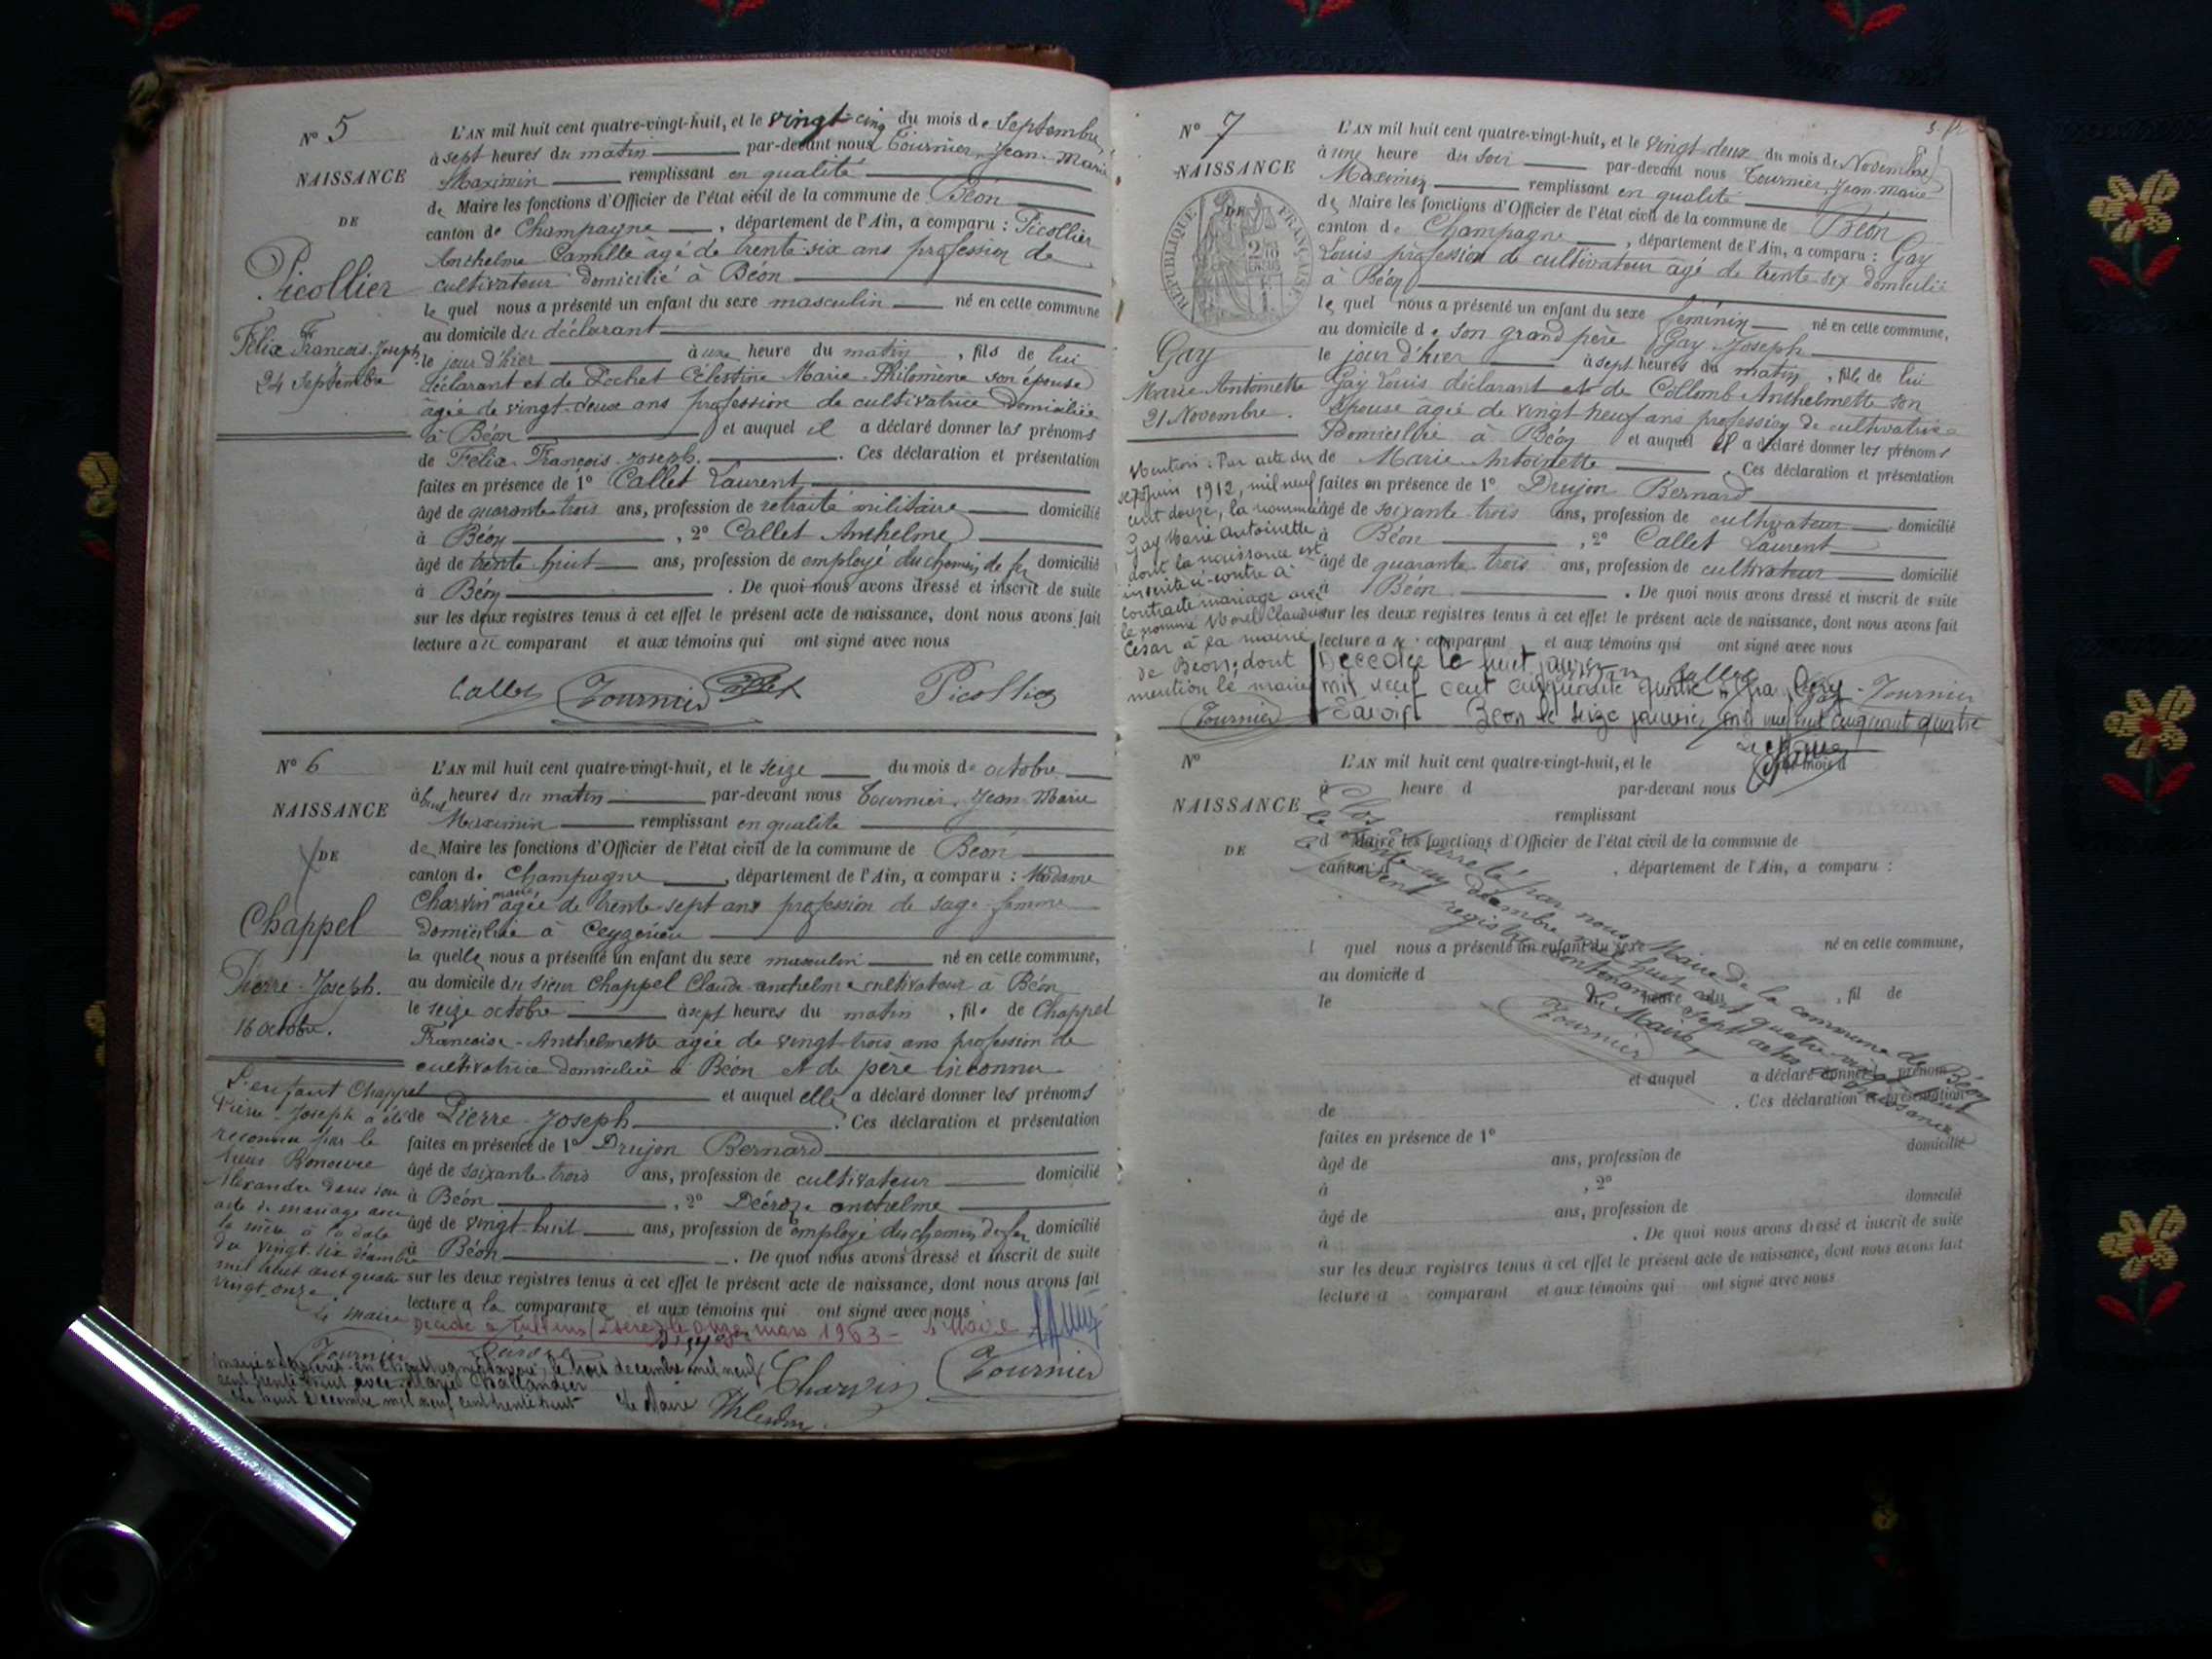 N° 5
NAISSANCE
DE
Picollier
Félix François-Joseph
24 Septembre
L'AN mil huit cent quatre-vingt-huit, et le vingt-cinq du mois de Septembre,
à sept heures du matin par-devant nous Tournier, Jean-Marie
Maximin remplissant en qualité
de Maire les fonctions d'Officier de l'état civil de la commune de Béon
canton de Champagne, département de l'Ain, a comparu : Picollier
Anthelme Camille âgé de trente-six ans profession de
cultivateur domicilié à Béon
le quel nous a présenté un enfant du sexe masculin né en cette commune
au domicile du déclarant
le jour d'hier à une heure du matin, fils de lui
déclarant et de Pochet Célestine Marie-Philomène son épouse
âgée de vingt-deux ans profession de cultivatrice domiciliée
à Béon et auquel il a déclaré donner les prénoms
de Félix-François-Joseph. Ces déclaration et présentation
faites en présence de 1° Callet Laurent
âgé de quarante-trois ans, profession de retraité militaire domicilié
à Béon, 2° Callet Anthelme
âgé de trente huit ans, profession de employé du chemin de fer domicilié
à Béon. De quoi nous avons dressé et inscrit de suite
sur les deux registres tenus à cet effet le présent acte de naissance, dont nous avons fait
lecture au comparant et aux témoins qui ont signé avec nous
Callet Tournier Callet Picollier
N° 6
NAISSANCE
DE
Chappel
Pierre-Joseph.
16 octobre.
L'AN mil huit cent quatre-vingt-huit, et le seize du mois de octobre
à huit heures du matin par-devant nous Tournier, Jean-Marie
Maximin remplissant en qualité
de Maire les fonctions d'Officier de l'état civil de la commune de Béon
canton de Champagne, département de l'Ain, a comparu : Madame
Charvin marie âgée de trente-sept ans profession de sage-femme
domiciliée à Ceyzérieu
la quelle nous a présenté un enfant du sexe masculin né en cette commune,
au domicile du sieur Chappel Claude-anthelme cultivateur à Béon
le seize octobre à sept heures du matin, fils de Chappel
Françoise-Anthelmette agée de vingt-trois ans profession de
cultivatrice domiciliée à Béon et de père inconnu
et auquel elle a déclaré donner les prénoms
de Pierre-Joseph. Ces déclaration et présentation
faites en présence de 1° Drujon Bernard
âgé de soixante-trois ans, profession de cultivateur domicilié
à Béon, 2° anthelme
âgé de vingt-huit ans, profession de employé du chemin de fer domicilié
à Béon. De quoi nous avons dressé et inscrit de suite
sur les deux registres tenus à cet effet le présent acte de naissance, dont nous avons fait
lecture a la comparante et aux témoins qui ont signé avec nous
L'enfant Chappel
Pierre-Joseph a été
reconnu par le
sieur
Alexandre dans son
acte de mariage avec
la mère à la date
du vingt-six décembre
mil huit cent quatre
vingt-onze.
Le maire
Tournier
Décédé à Tullins (Isère) le onze mars 1963 - le Maire
le trois decembre mil neuf
cent trente huit avec Marie
le huit decembre mil neuf cent trente huit le Maire
Charvin
Tournier
N° 7
NAISSANCE
DE
RÉPUBLIQUE FRANÇAISE
Gay
Marie-Antoinette
21 Novembre.
L'AN mil huit cent quatre-vingt-huit, et le vingt-deux du mois de Novembre
à une heure du soir par-devant nous Tournier, Jean-Marie
Maximin remplissant en qualité
de Maire les fonctions d'Officier de l'état civil de la commune de Béon
canton de Champagne, département de l'Ain, a comparu : Gay
Louis profession de cultivateur âgé de trente-six domicilié
à Béon
le quel nous a présenté un enfant du sexe féminin né en cette commune,
au domicile de son grand père Gay Joseph
le jour d'hier à sept heures du matin, fille de lui
Gay Louis déclarant et de Collomb Anthelmette son
épouse âgée de vingt neuf ans profession de cultivatrice
domiciliée à Béon et auquel il a déclaré donner les prénoms
de Marie-Antoinette. Ces déclaration et présentation
faites en présence de 1° Drujon Bernard
âgé de soixante-trois ans, profession de cultivateur domicilié
à Béon, 2° Callet Laurent
âgé de quarante-trois ans, profession de cultivateur domicilié
à Béon. De quoi nous avons dressé et inscrit de suite
sur les deux registres tenus à cet effet le présent acte de naissance, dont nous avons fait
lecture au comparant et aux témoins qui ont signé avec nous
Mention. Par acte du
sept juin 1912, mil neuf
cent douze, la nommée
Gay Marie Antoinette
dont la naissance est
inscrite ci-contre a
contracté mariage avec
le nommé Morel Claudius
César à la mairie
de Béon, dont
mention le maire
Tournier
Décédée le huit janvier
mil neuf cent cinquante quatre
Savoie Béon le seize janvier mil neuf cent cinquante quatre
Callet Gay Tournier
Le Maire
N°
NAISSANCE
DE
L'AN mil huit cent quatre-vingt-huit, et le du mois d
à heure d par-devant nous
remplissant
d Maire les fonctions d'Officier de l'état civil de la commune de
canton d, département de l'Ain, a comparu :
l quel nous a présenté un enfant du sexe né en cette commune,
au domicile d
le à heure du, fil de
et auquel a déclaré donner l prénom
de. Ces déclaration et présentation
faites en présence de 1°
âgé de ans, profession de domicilié
à, 2°
âgé de ans, profession de domicilié
à. De quoi nous avons dressé et inscrit de suite
sur les deux registres tenus à cet effet le présent acte de naissance, dont nous avons fait
lecture a comparant et aux témoins qui ont signé avec nous
Clos et arrêté par nous Maire de la commune de Béon
le trente-un décembre mil huit cent quatre-vingt-huit
le présent registre contenant sept actes de naissance
Le Maire,
Tournier